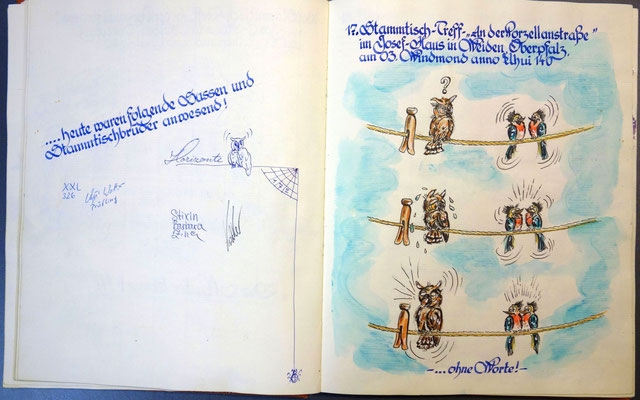 ....heute waren folgende Sassen und
Stammtischbrüder anwesend!
XXL
326
Stixin
Barbara
17. Stammtisch-Treff - „In der Porzellanstraße“
im Josef-Haus in Weiden, Oberpfalz,
am 03. Windmond anno Uhui 146
?
-... ohne Worte! -